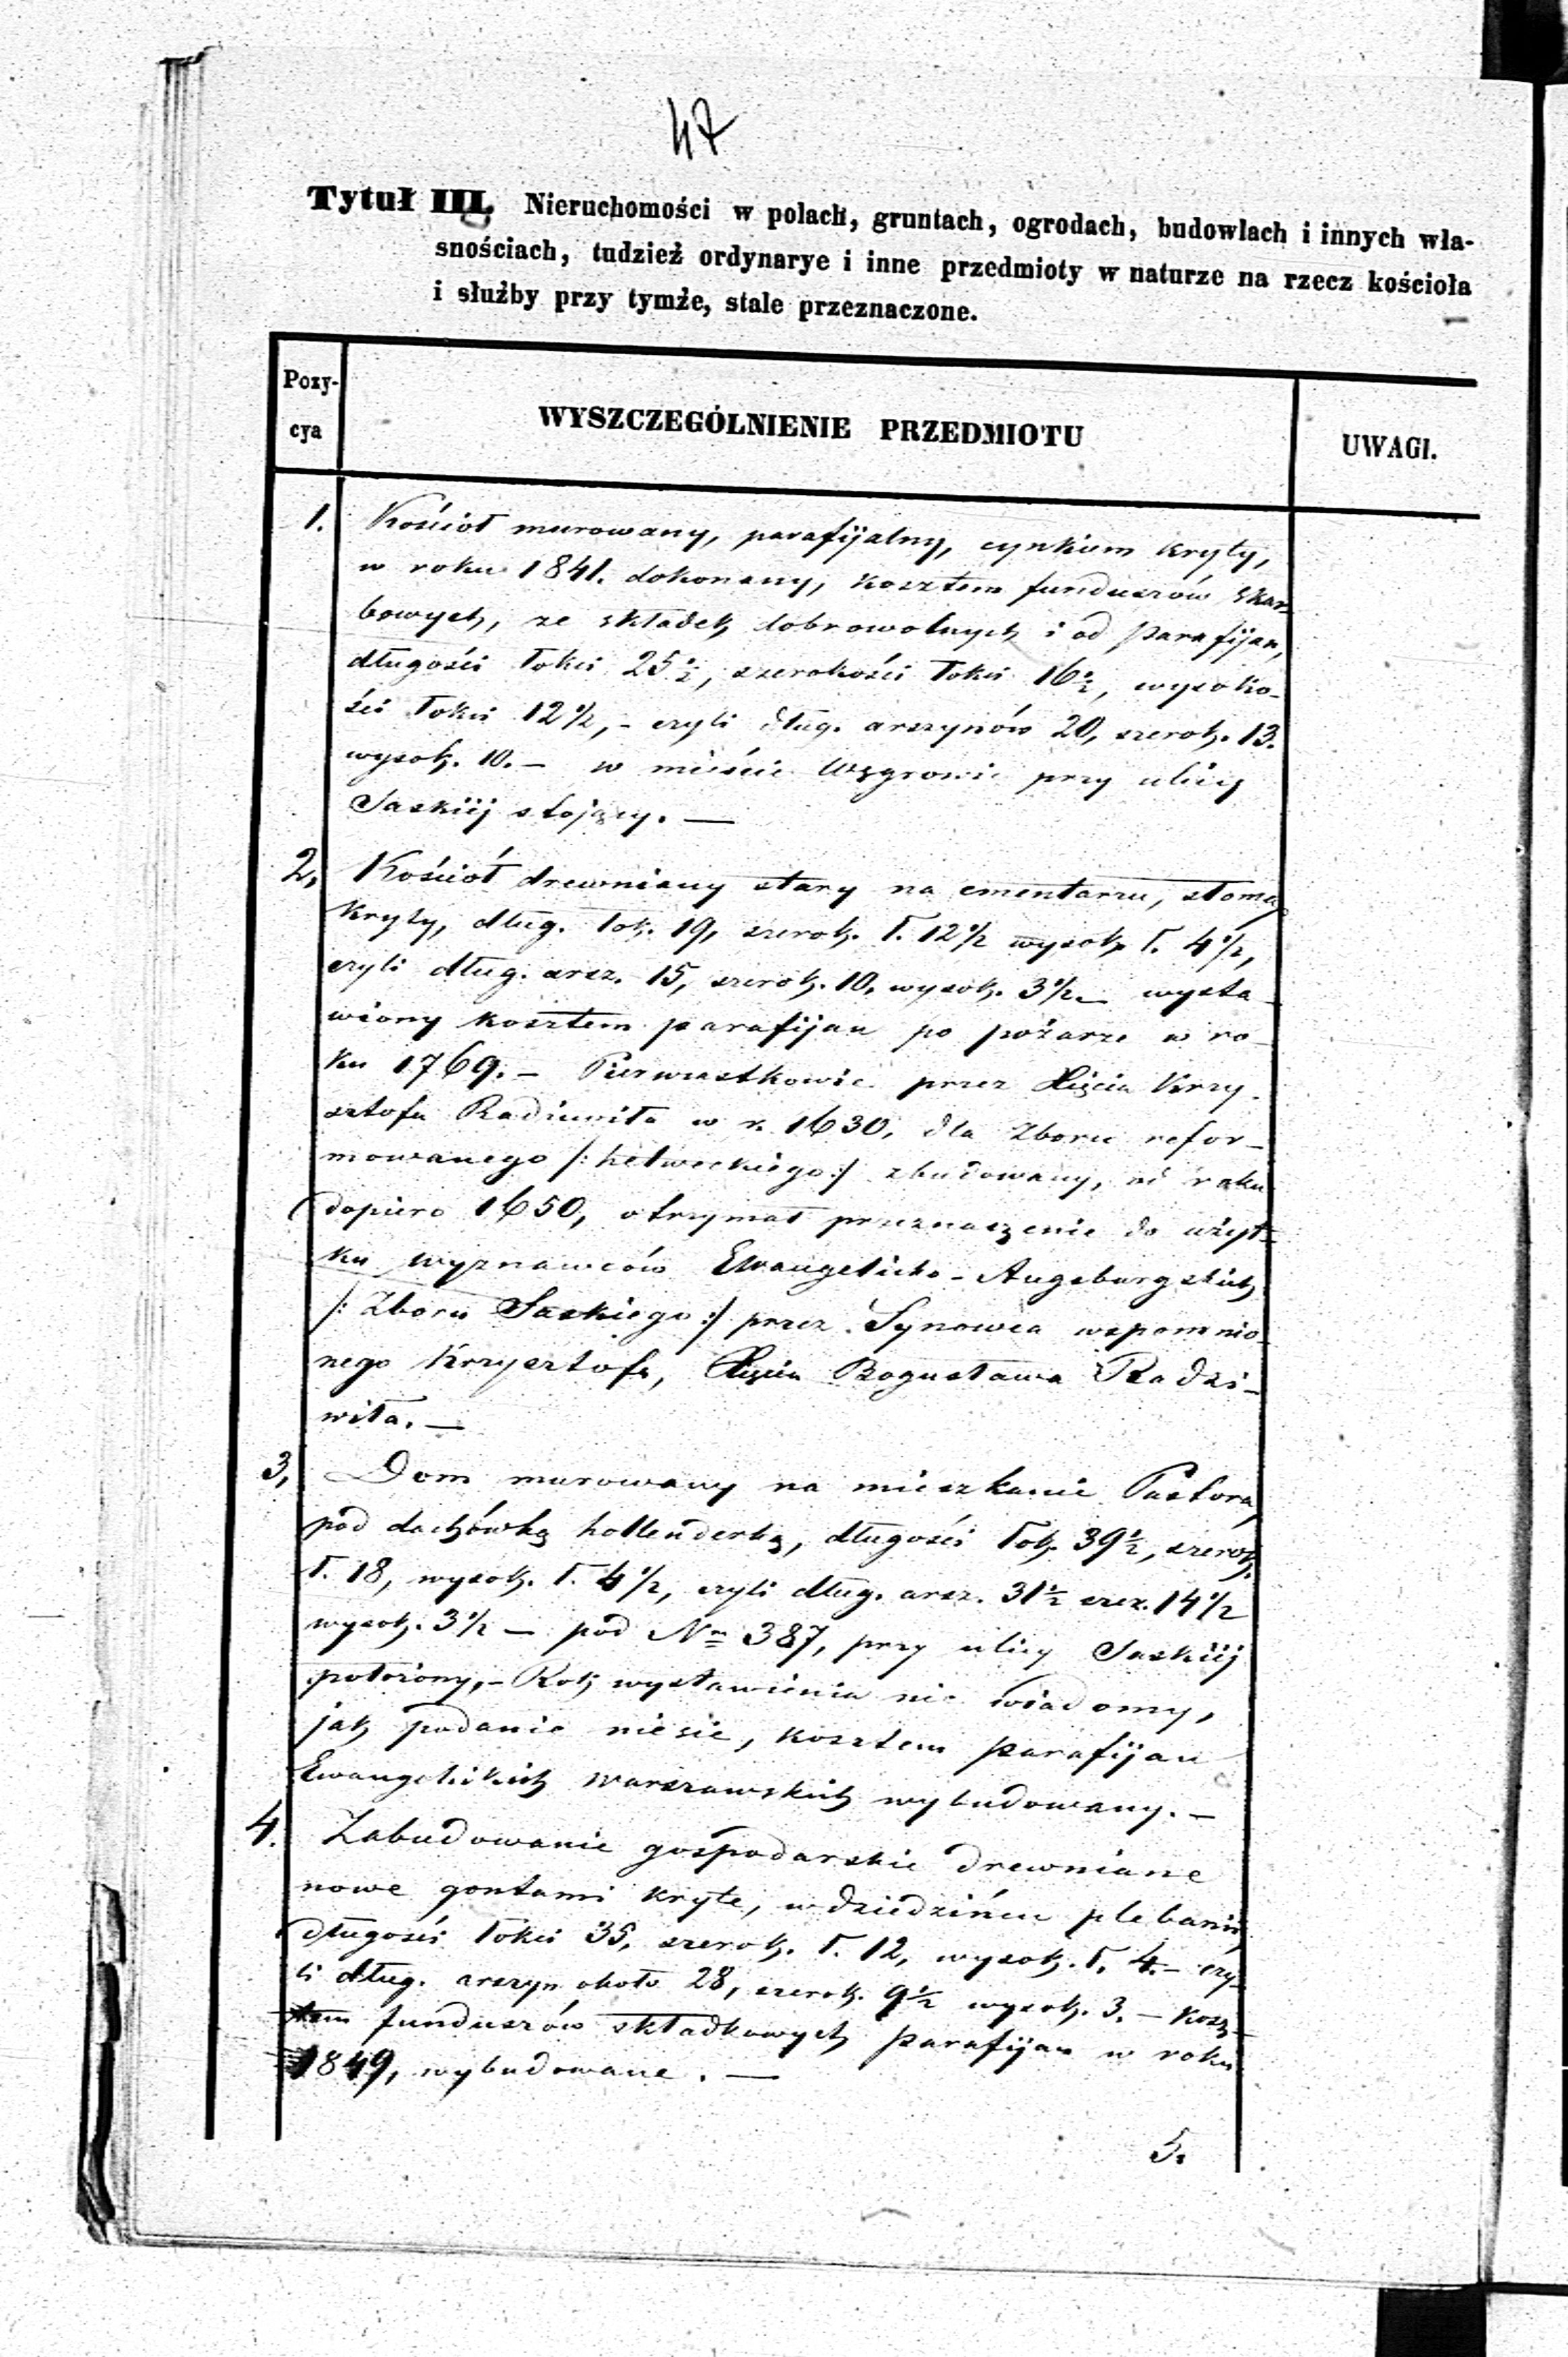 47
Tytuł III. Nieruchomości w polach, gruntach, ogrodach, budowlach i innych wła-
snościach, tudzież ordynarye i inne przedmioty w naturze na rzecz kościoła
i służby przy tymże, stale przeznaczone.
Pozy-
cya
WYSZCZEGÓLNIENIE PRZEDMIOTU
UWAGI.
1. Kościoł murowany, parafijalny, cynkiem kryty,
w roku 1841. dokonany, kosztem funduszów skar-
bowych, ze składek dobrowolnych i od parafijan,
długości łokci 25½, szerokości łokci 16½, wysoko-
ści łokci 12½, - czyli dług. arszynów 20, szerok. 13.
wysok. 10. - w mieście Węgrowie przy ulicy
Saskiéj stojący. —
2, Kościół drewniany stary na cmentarzu, słomą
kryty, dług. łok. 19, szerok. ł. 12½ wysok. ł. 4½,
czyli dług. arsz. 15, szerok. 10, wysok. 3½ — wysta-
wiony kosztem parafijan po pożarze w ro-
ku 1769. - Pierwiastkowie przez Xięcia Krzy-
sztofa Radziwiła w r. 1630, dla Zboru refor-
mowanego /: helweckiego :/ zbudowany, od roku
dopiero 1650, otrzymał przeznaczenie do użyt-
ku wyznawców Ewangelicko-Augsburgskich
/: Zboru Saskiego :/ przez Synowca wspomnio-
nego Krzysztofa, Xięcia Bogusława Radzi-
wiła. —
3, Dom murowany na mieszkanie Pastora,
pod dachówką hollenderką, długości łok. 39½, szerok.
ł. 18, wysok. ł. 4½, czyli dług. arsz. 31½ szer. 14½
wysok. 3½ — pod Nm 387, przy ulicy Saskiéj
położony, - Rok wystawienia nie wiadomy,
jak podanie niesie, kosztem parafijan
Ewangelickich warszawskich wybudowany. —
4. Zabudowanie gospodarskie drewniane
nowe gontami kryte, w dziedzińcu plebanii,
długości łokci 35, szerok. ł. 12, wysok. ł. 4. - czy-
li dług. arszyn około 28, szerok. 9½ wysok. 3. - kosz-
tem funduszów składkowych parafijan w roku
1849, wybudowane. —
5.